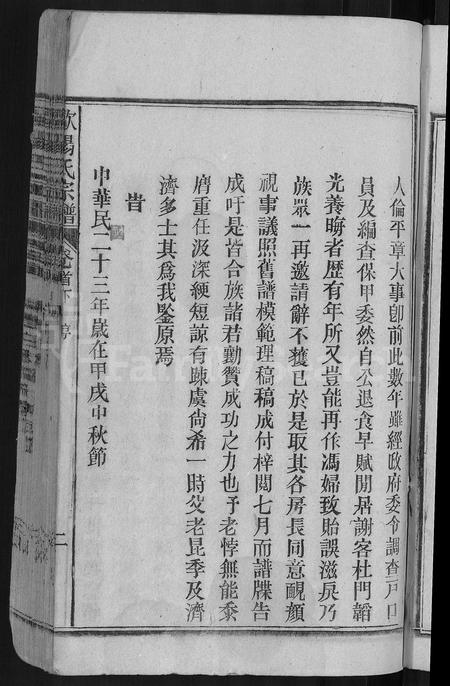 人倫平章大事卽前此數年雖經政府委令調查戸口
員及編查保甲委然自公退食早賦閒居謝客杜門韜
光養晦者歷有年所又豈能再作馮婦致貽誤滋戾乃
族眾一再邀請辭不獲已於是取其各房長同意靦顏
視事議照舊譜模範理稿稿成付梓閱七月而譜牒告
成吁是皆合族諸君勷贊成功之力也予老悖無能忝
膺重任汲深綆短諒有疎虞尙希一時父老昆季及濟
濟多士其爲我鑒原焉
旹
中華民二十三年歲在甲戌中秋節
楊氏宗譜
卷首下
二